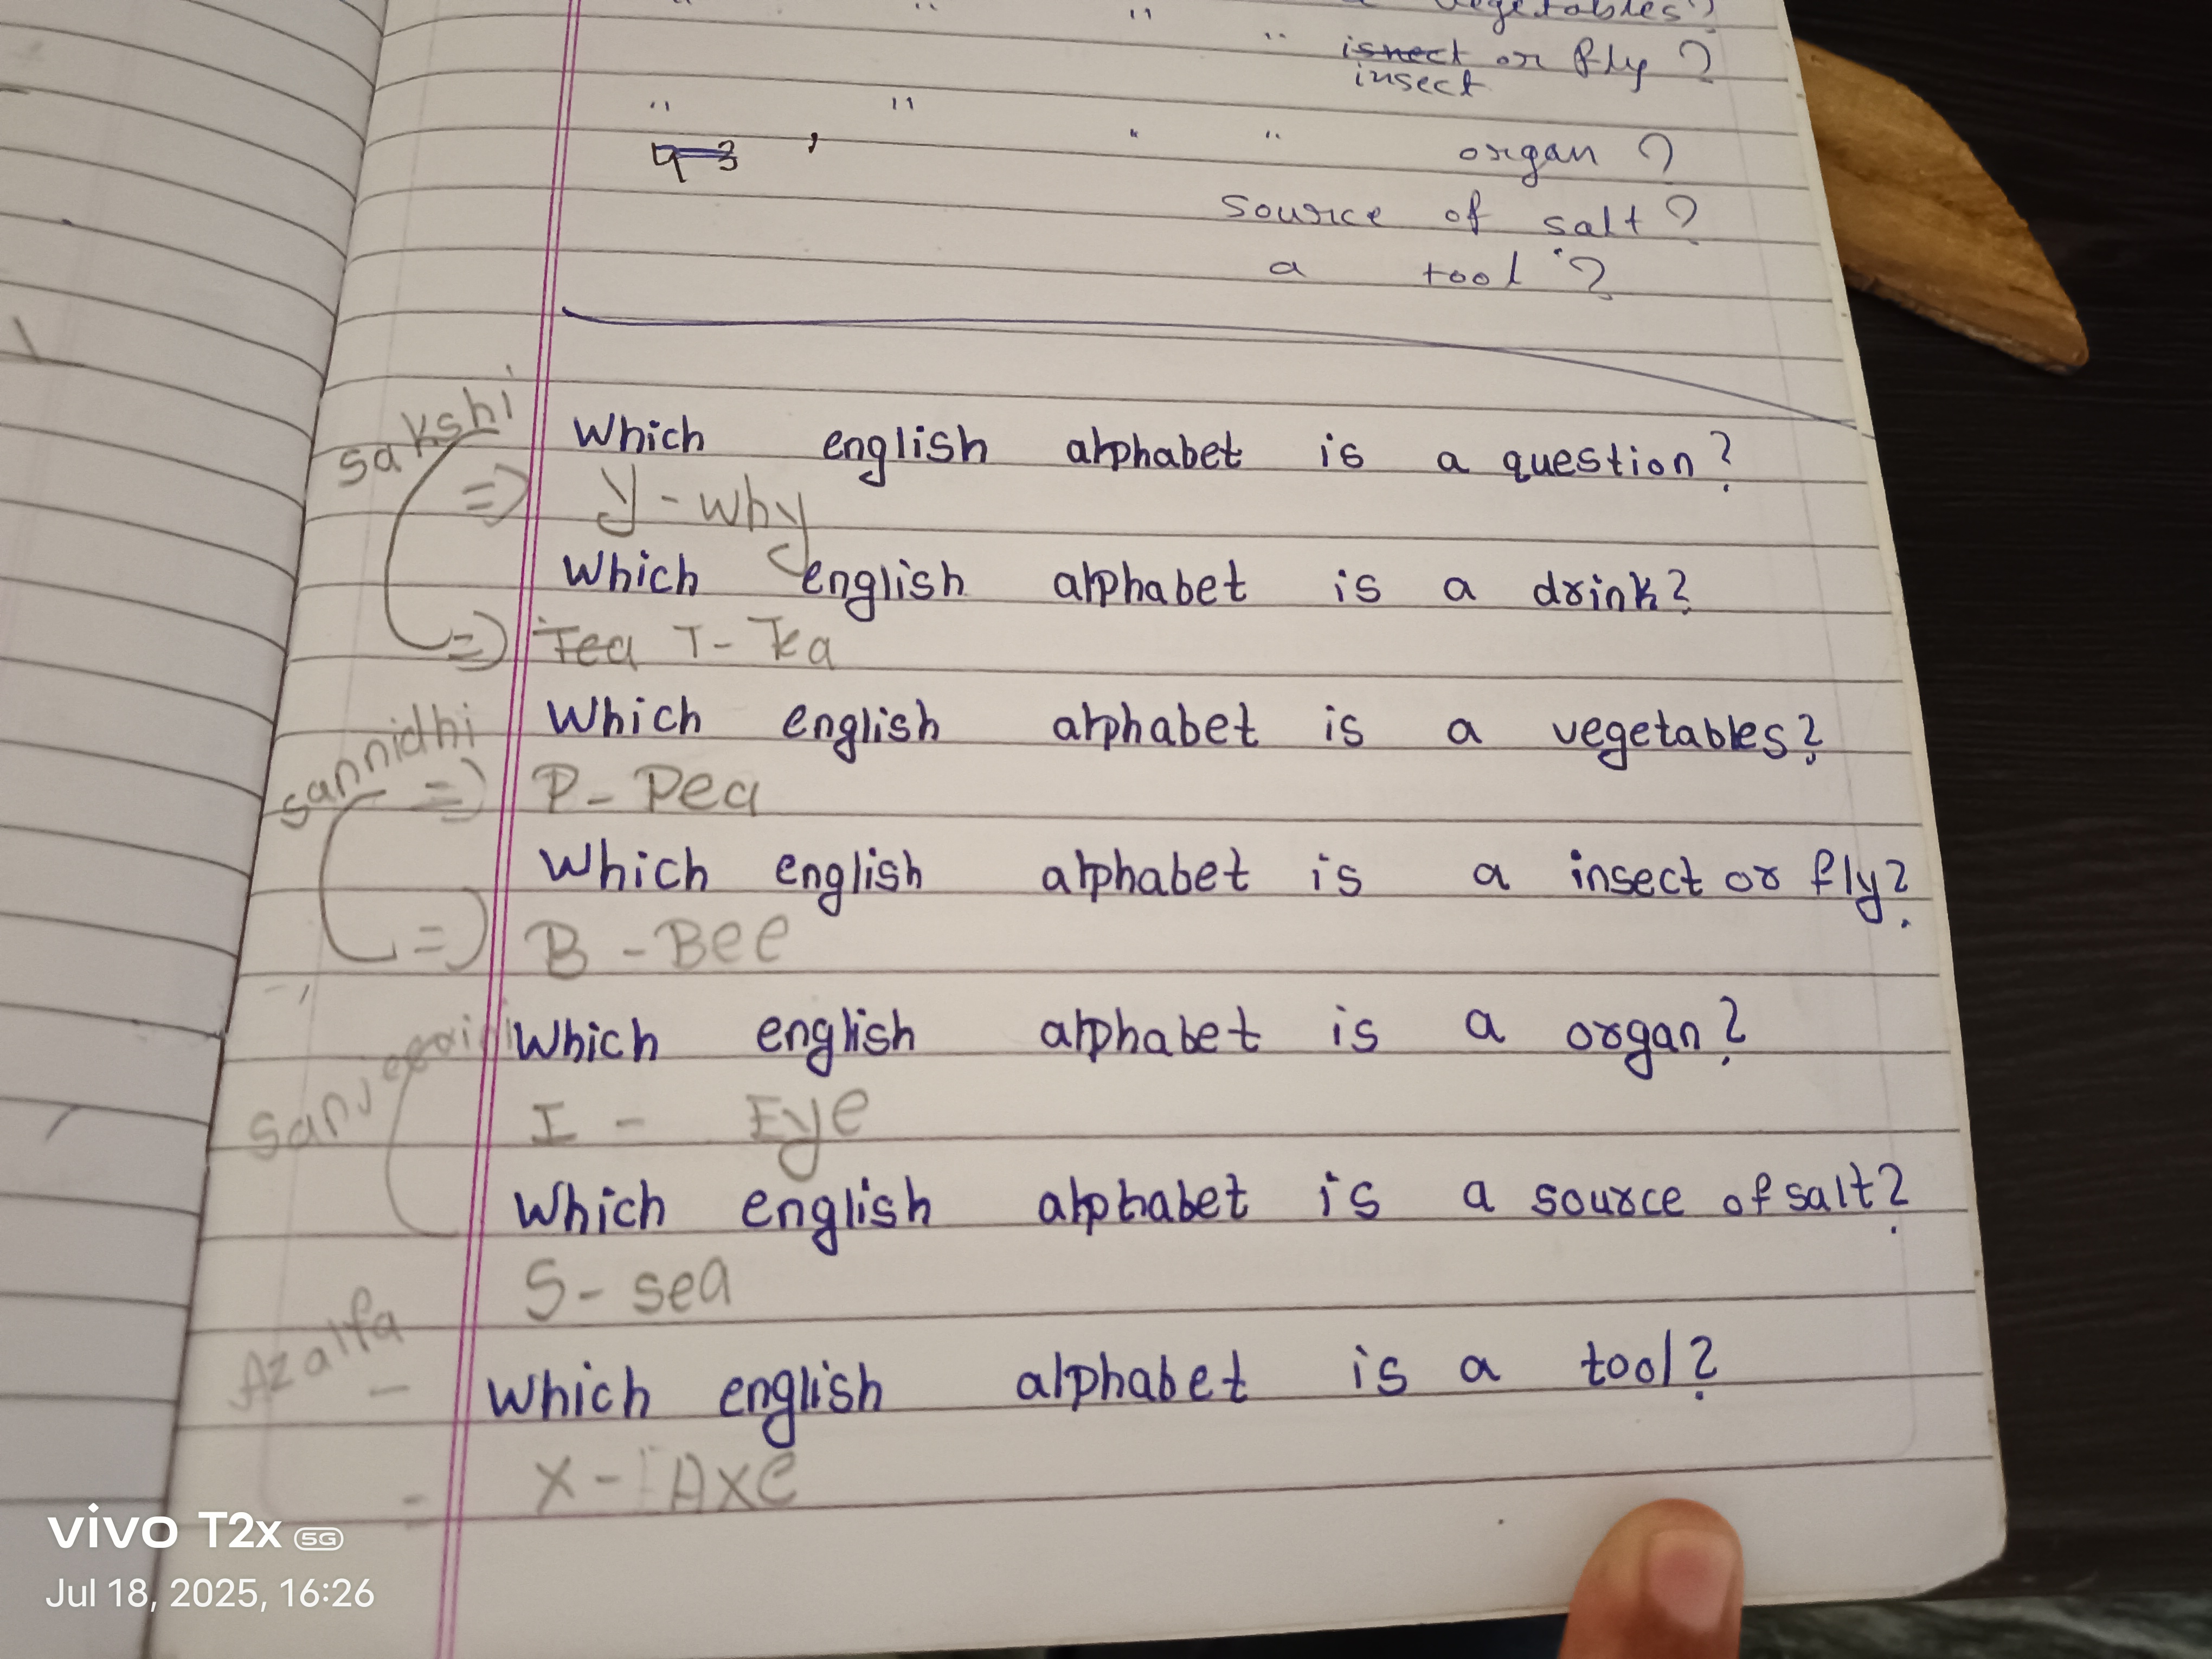 " " " vegetables?
" isnect or fly ?
insect
" " " " organ ?
source of salt?
a tool ?
Sakshi
Which english alphabet is a question?
=> y - why
Which english alphabet is a drink?
=> Tea T - Tea
Sannidhi
Which english alphabet is a vegetables?
=> P - Pea
Which english alphabet is a insect or fly?
=> B - Bee
Which english alphabet is a organ?
I - Eye
Which english alphabet is a source of salt?
S - sea
Azalfa
Which english alphabet is a tool?
X - Axe
vivo T2x 5G
Jul 18, 2025, 16:26